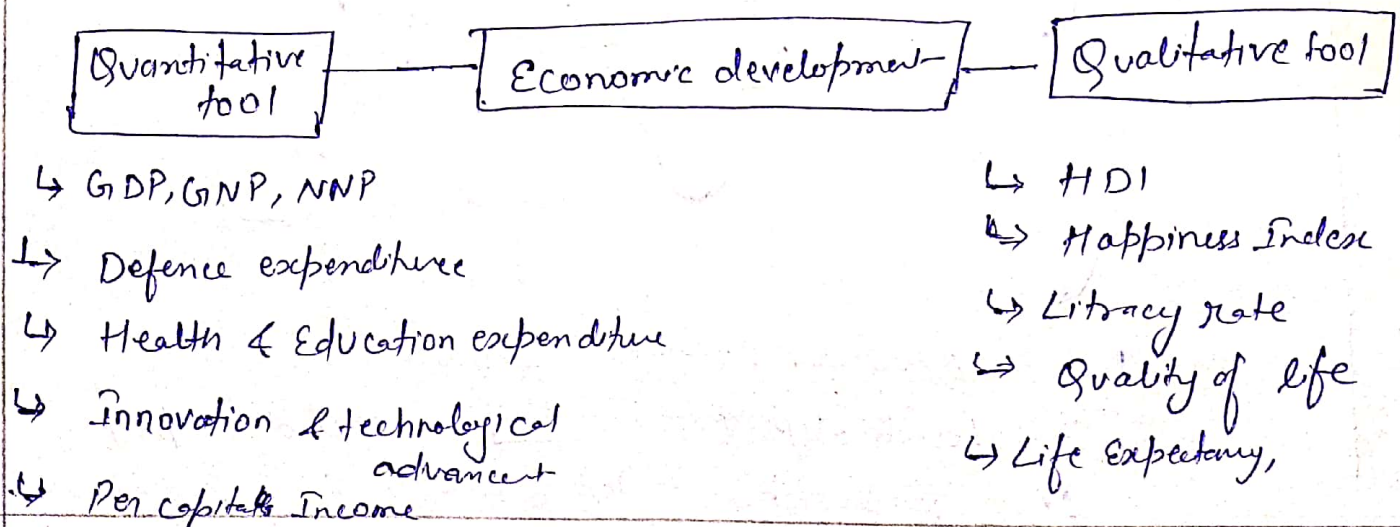 Quantitative
tool
Economic development
Qualitative tool
↳ GDP, GNP, NNP
↳ Defence expenditure
↳ Health & Education expenditure
↳ Innovation & technological
advancent
↳ Per capita Income
↳ HDI
↳ Happiness Index
↳ Litracy rate
↳ Quality of life
↳ Life Expectancy,